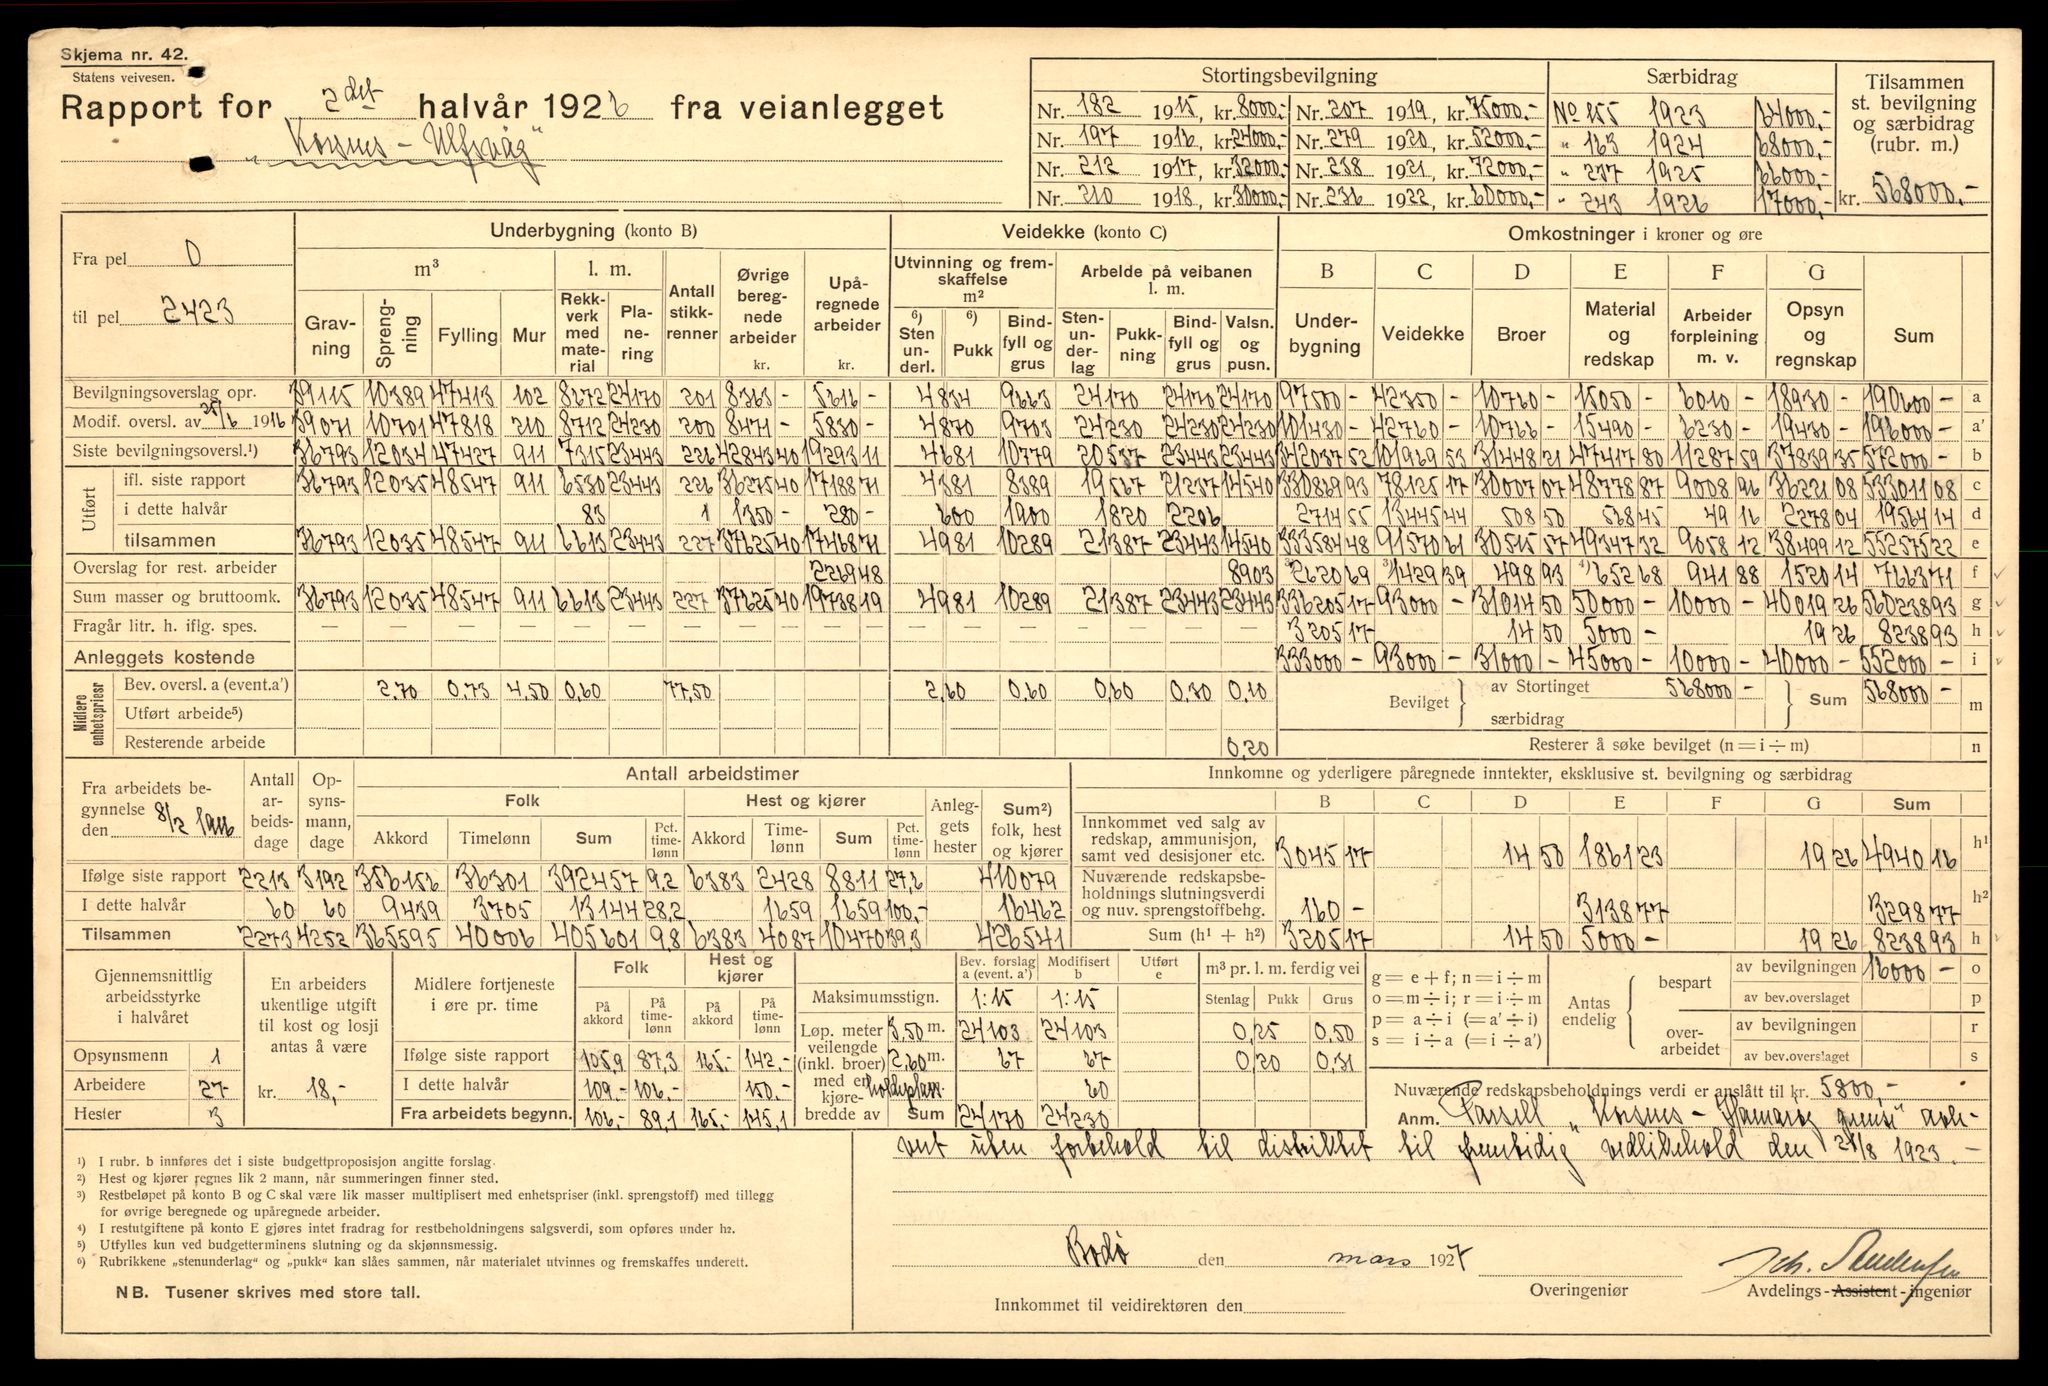 Skjema nr. 42.
Statens veivesen.
Rapport for 2det halvår 1926 fra veianlegget
"Korsnes - Ulfsvåg"
Stortingsbevilgning
Nr. 182 1915, kr. 8000.- Nr. 207 1919, kr. 75000.-
Nr. 197 1916, kr. 24000.- Nr. 279 1920, kr. 52000.-
Nr. 212 1917, kr. 32000.- Nr. 238 1921, kr. 72000.-
Nr. 210 1918, kr. 30000.- Nr. 236 1922, kr. 60000.-
Særbidrag
No 155 1923 64000.-
" 163 1924 68000.-
" 237 1925 66000.-
" 243 1926 17000.-
Tilsammen st. bevilgning og særbidrag (rubr. m.)
kr. 568000.-
Fra pel 0
til pel 2423
Underbygning (konto B)
m³ l. m.
Gravning Sprengning Fylling Mur Rekkverk med material Planering Antall stikkrenner Øvrige beregnede arbeider kr. Upåregnede arbeider kr.
Veidekke (konto C)
Utvinning og fremskaffelse m² Arbeide på veibanen l. m.
6) Sten underl. 6) Pukk Bindfyll og grus Stenunderlag Pukkning Bindfyll og grus Valsn. og pusn.
Omkostninger i kroner og øre
B C D E F G
Underbygning Veidekke Broer Material og redskap Arbeider forpleining m. v. Opsyn og regnskap Sum
Bevilgningsoverslag opr. 39115 10389 47413 102 8272 24170 201 8363 - 5616 - 4834 9663 24170 24170 24170 97500 - 42350 - 10760 - 15050 - 6010 - 18930 - 190600 - a
Modif. oversl. av 25/6 1916 39071 10701 47818 210 8712 24230 200 8471 - 5830 - 4870 9703 24230 24230 24230 101430 - 42760 - 10766 - 15490 - 6230 - 19430 - 196000 - a'
Siste bevilgningsoversl.¹) 36793 12034 47427 911 7315 23443 226 42843 40 19293 11 4681 10779 20537 23443 23443 342037 52 101969 53 31448 21 47417 80 11287 59 37839 35 572000 - b
Utført
ifl. siste rapport 36793 12035 48547 911 6530 23443 226 36275 40 17188 71 4381 8389 19567 21237 14540 330869 93 78125 17 30007 07 48778 87 9008 96 36221 08 533011 08 c
i dette halvår 83 1 1350 - 280 - 600 1900 1820 2206 2714 55 13445 44 508 50 568 45 49 16 2278 04 19564 14 d
tilsammen 36793 12035 48547 911 6613 23443 227 37625 40 17468 71 4981 10289 21387 23443 14540 333584 48 91570 61 30515 57 49347 32 9058 12 38499 12 552575 22 e
Overslag for rest. arbeider 2269 48 8903 ³)2620 69 ³)1429 39 498 93 ⁴)652 68 941 88 1520 14 7663 71 f
Sum masser og bruttoomk. 36793 12035 48547 911 6613 23443 227 37625 40 19738 19 4981 10289 21387 23443 23443 336205 17 93000 - 31014 50 50000 - 10000 - 40019 26 560238 93 g
Fragår litr. h. iflg. spes. — — — — — — — — — — — — — — — — 3205 17 14 50 5000 - 19 26 8238 93 h
Anleggets kostende 333000 - 93000 - 31000 - 45000 - 10000 - 40000 - 552000 - i
Midlere enhetspriser
Bev. oversl. a (event. a') 2.70 0.73 4.50 0.60 77.50 2.60 0.60 0.60 0.30 0.10
Utført arbeide⁵)
Resterende arbeide 0.20
Bevilget av Stortinget 568000 - særbidrag Sum 568000 - m
Resterer å søke bevilget (n = i ÷ m) n
Fra arbeidets begynnelse den 8/2 1916
Antall arbeidsdage Opsynsmann, dage
Antall arbeidstimer
Folk Hest og kjører Anleggets hester Sum²) folk, hest og kjører
Akkord Timelønn Sum Pct. timelønn Akkord Timelønn Sum Pct. timelønn
Ifølge siste rapport 2213 3192 356156 36301 392457 9.2 6383 2428 8811 27.6 410079
I dette halvår 60 60 9439 3705 13144 28.2 1659 1659 100.- 16462
Tilsammen 2273 4252 365595 40006 405601 9.8 6383 4087 10470 39.3 426541
Innkomne og yderligere påregnede inntekter, eksklusive st. bevilgning og særbidrag
B C D E F G Sum
Innkommet ved salg av redskap, ammunisjon, samt ved desisjoner etc. 3045 17 14 50 1861 23 19 26 4940 16 h¹
Nuværende redskapsbeholdnings slutningsverdi og nuv. sprengstoffbehg. 160 - 3138 77 3298 77 h²
Sum (h¹ + h²) 3205 17 14 50 5000 - 19 26 8238 93 h
Gjennemsnittlig arbeidsstyrke i halvåret
Opsynsmenn 1
Arbeidere 27
Hester 3
En arbeiders ukentlige utgift til kost og losji antas å være
kr. 18,-
Midlere fortjeneste i øre pr. time
Folk Hest og kjører
På akkord På timelønn På akkord På timelønn
Ifølge siste rapport 105,9 87,3 165,- 142,-
I dette halvår 109,- 106,- 150,-
Fra arbeidets begynn. 106,- 89,1 165,- 145,1
Bev. forslag a (event. a') Modifisert b Utført e
Maksimumsstign. 1:15 1:15
Løp. meter veilengde (inkl. broer) med en kjørebredde av
3,50 m. 24103 24103
2,60 m. 67 67
60
Sum 24170 24230
m³ pr. l. m. ferdig vei
Stenlag Pukk Grus
0,25 0,50
0,20 0,31
g = e + f; n = i ÷ m
o = m ÷ i; r = i ÷ m
p = a ÷ i (= a' ÷ i)
s = i ÷ a (= i ÷ a')
Antas endelig
bespart av bevilgningen 16000 - o
av bev.overslaget p
overarbeidet av bevilgningen r
av bev.overslaget s
Nuværende redskapsbeholdnings verdi er anslått til kr. 5800,-
Anm. Parsell "Korsnes - Hamarøy grense" over-
vert uten forbehold til distriktet til fremtidig vedlikehold den 21/8 1923. -
¹) I rubr. b innføres det i siste budgettproposisjon angitte forslag.
²) Hest og kjører regnes lik 2 mann, når summeringen finner sted.
³) Restbeløpet på konto B og C skal være lik masser multiplisert med enhetspriser (inkl. sprengstoff) med tillegg
for øvrige beregnede og upåregnede arbeider.
⁴) I restutgiftene på konto E gjøres intet fradrag for restbeholdningens salgsverdi, som opføres under h2.
⁵) Utfylles kun ved budgetterminens slutning og da skjønnsmessig.
⁶) Rubrikkene „stenunderlag" og „pukk" kan slåes sammen, når materialet utvinnes og fremskaffes underett.
NB. Tusener skrives med store tall.
Bodø den mars 1927
Innkommet til veidirektøren den
Overingeniør
Avdelings-Assistent-ingeniør